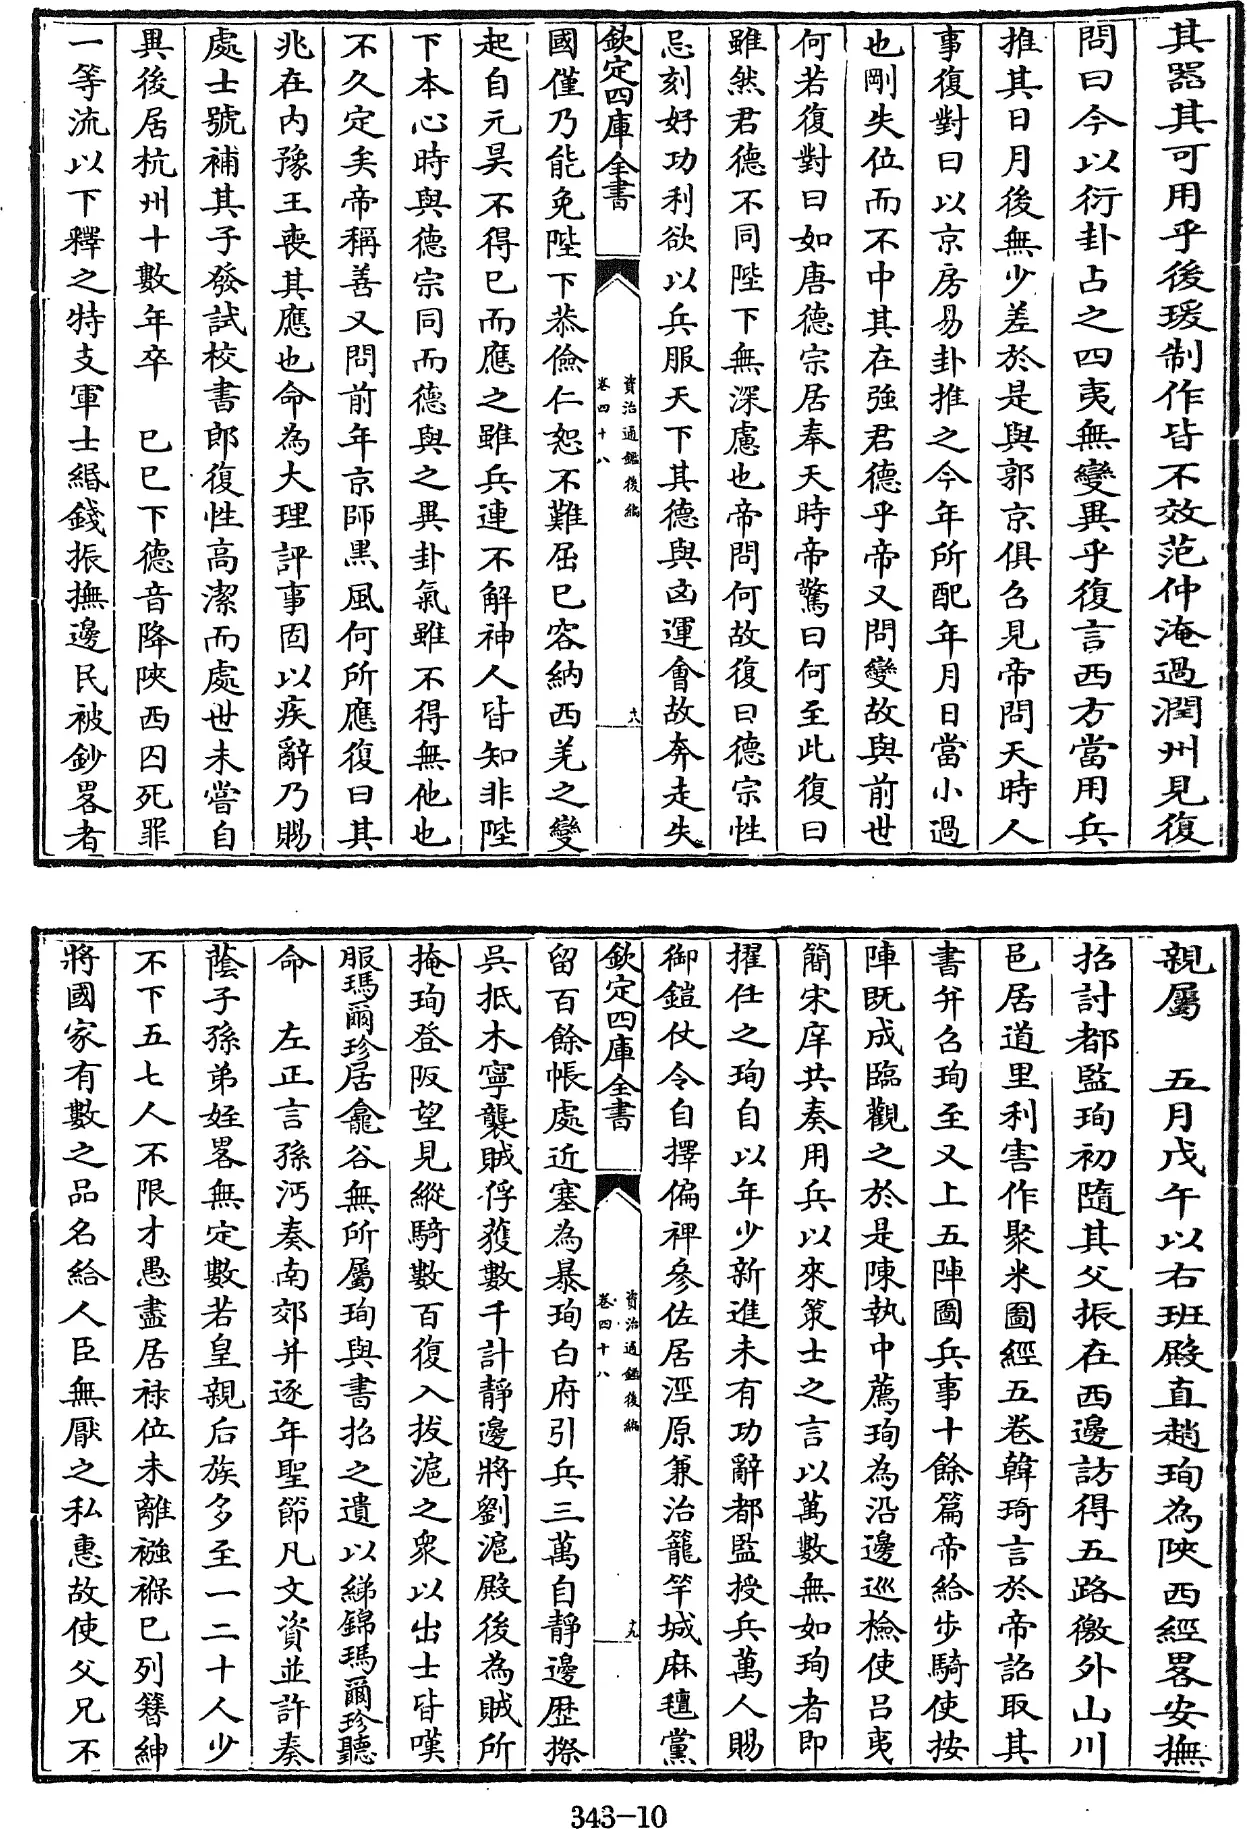 其器其可用乎後瑗制作皆不效范仲淹過潤州見復
問曰今以衍卦占之四夷無變異乎復言西方當用兵
推其日月後無少差於是與郭京俱召見帝問天時人
事復對曰以京房易卦推之今年所配年月日當小過
也剛失位而不中其在強君德乎帝又問變故與前世
何若復對曰如唐德宗居奉天時帝驚曰何至此復曰
雖然君德不同陛下無深慮也帝問何故復曰德宗性
忌刻好功利欲以兵服天下其德與凶運會故奔走失
欽定四庫全書
資治通鑑後編
卷四十八
十八
國僅乃能免陛下恭儉仁恕不難屈已容納西羌之變
起自元昊不得已而應之雖兵連不解神人皆知非陛
下本心時與德宗同而德與之異卦氣雖不得無他也
不久定矣帝稱善又問前年京師黑風何所應復曰其
兆在内豫王喪其應也命為大理評事固以疾辭乃賜
處士號補其子發試校書郎復性高潔而處世未嘗自
異後居杭州十數年卒　已巳下德音降陝西囚死罪
一等流以下釋之特支軍士緡錢振撫邊民被鈔畧者
親屬　五月戊午以右班殿直趙珣為陝西經畧安撫
招討都監珣初隨其父振在西邊訪得五路徼外山川
邑居道里利害作聚米圖經五卷韓琦言於帝詔取其
書并召珣至又上五陣圖兵事十餘篇帝給步騎使按
陣既成臨觀之於是陳執中薦珣為沿邊巡檢使吕夷
簡宋庠共奏用兵以來策士之言以萬數無如珣者即
擢任之珣自以年少新進未有功辭都監授兵萬人賜
御鎧仗令自擇偏裨參佐居涇原兼治籠竿城麻氊黨
欽定四庫全書
資治通鑑後編
卷四十八
十九
留百餘帳處近塞為暴珣白府引兵三萬自静邊歷揆
吳抵木寧襲賊俘獲數千計静邊將劉滬殿後為賊所
掩珣登阪望見縱騎數百復入拔滬之衆以出士皆嘆
服瑪爾珍居龕谷無所屬珣與書招之遺以綈錦瑪爾珍聽
命　左正言孫沔奏南郊并逐年聖節凡文資並許奏
蔭子孫弟姪畧無定數若皇親后族多至一二十人少
不下五七人不限才愚盡居禄位未離襁褓已列簪紳
將國家有數之品名給人臣無厭之私惠故使父兄不
343-10